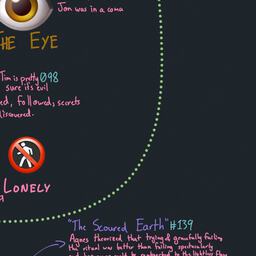 Jon was in a coma
THE EYE
Tim is pretty 098
sure it's evil
ed, followed, secrets
discovered.
LONELY
"The Scoured Earth" #139
Agnes theorized that trying & gracefully failing
the ritual was better than failing spectacularly